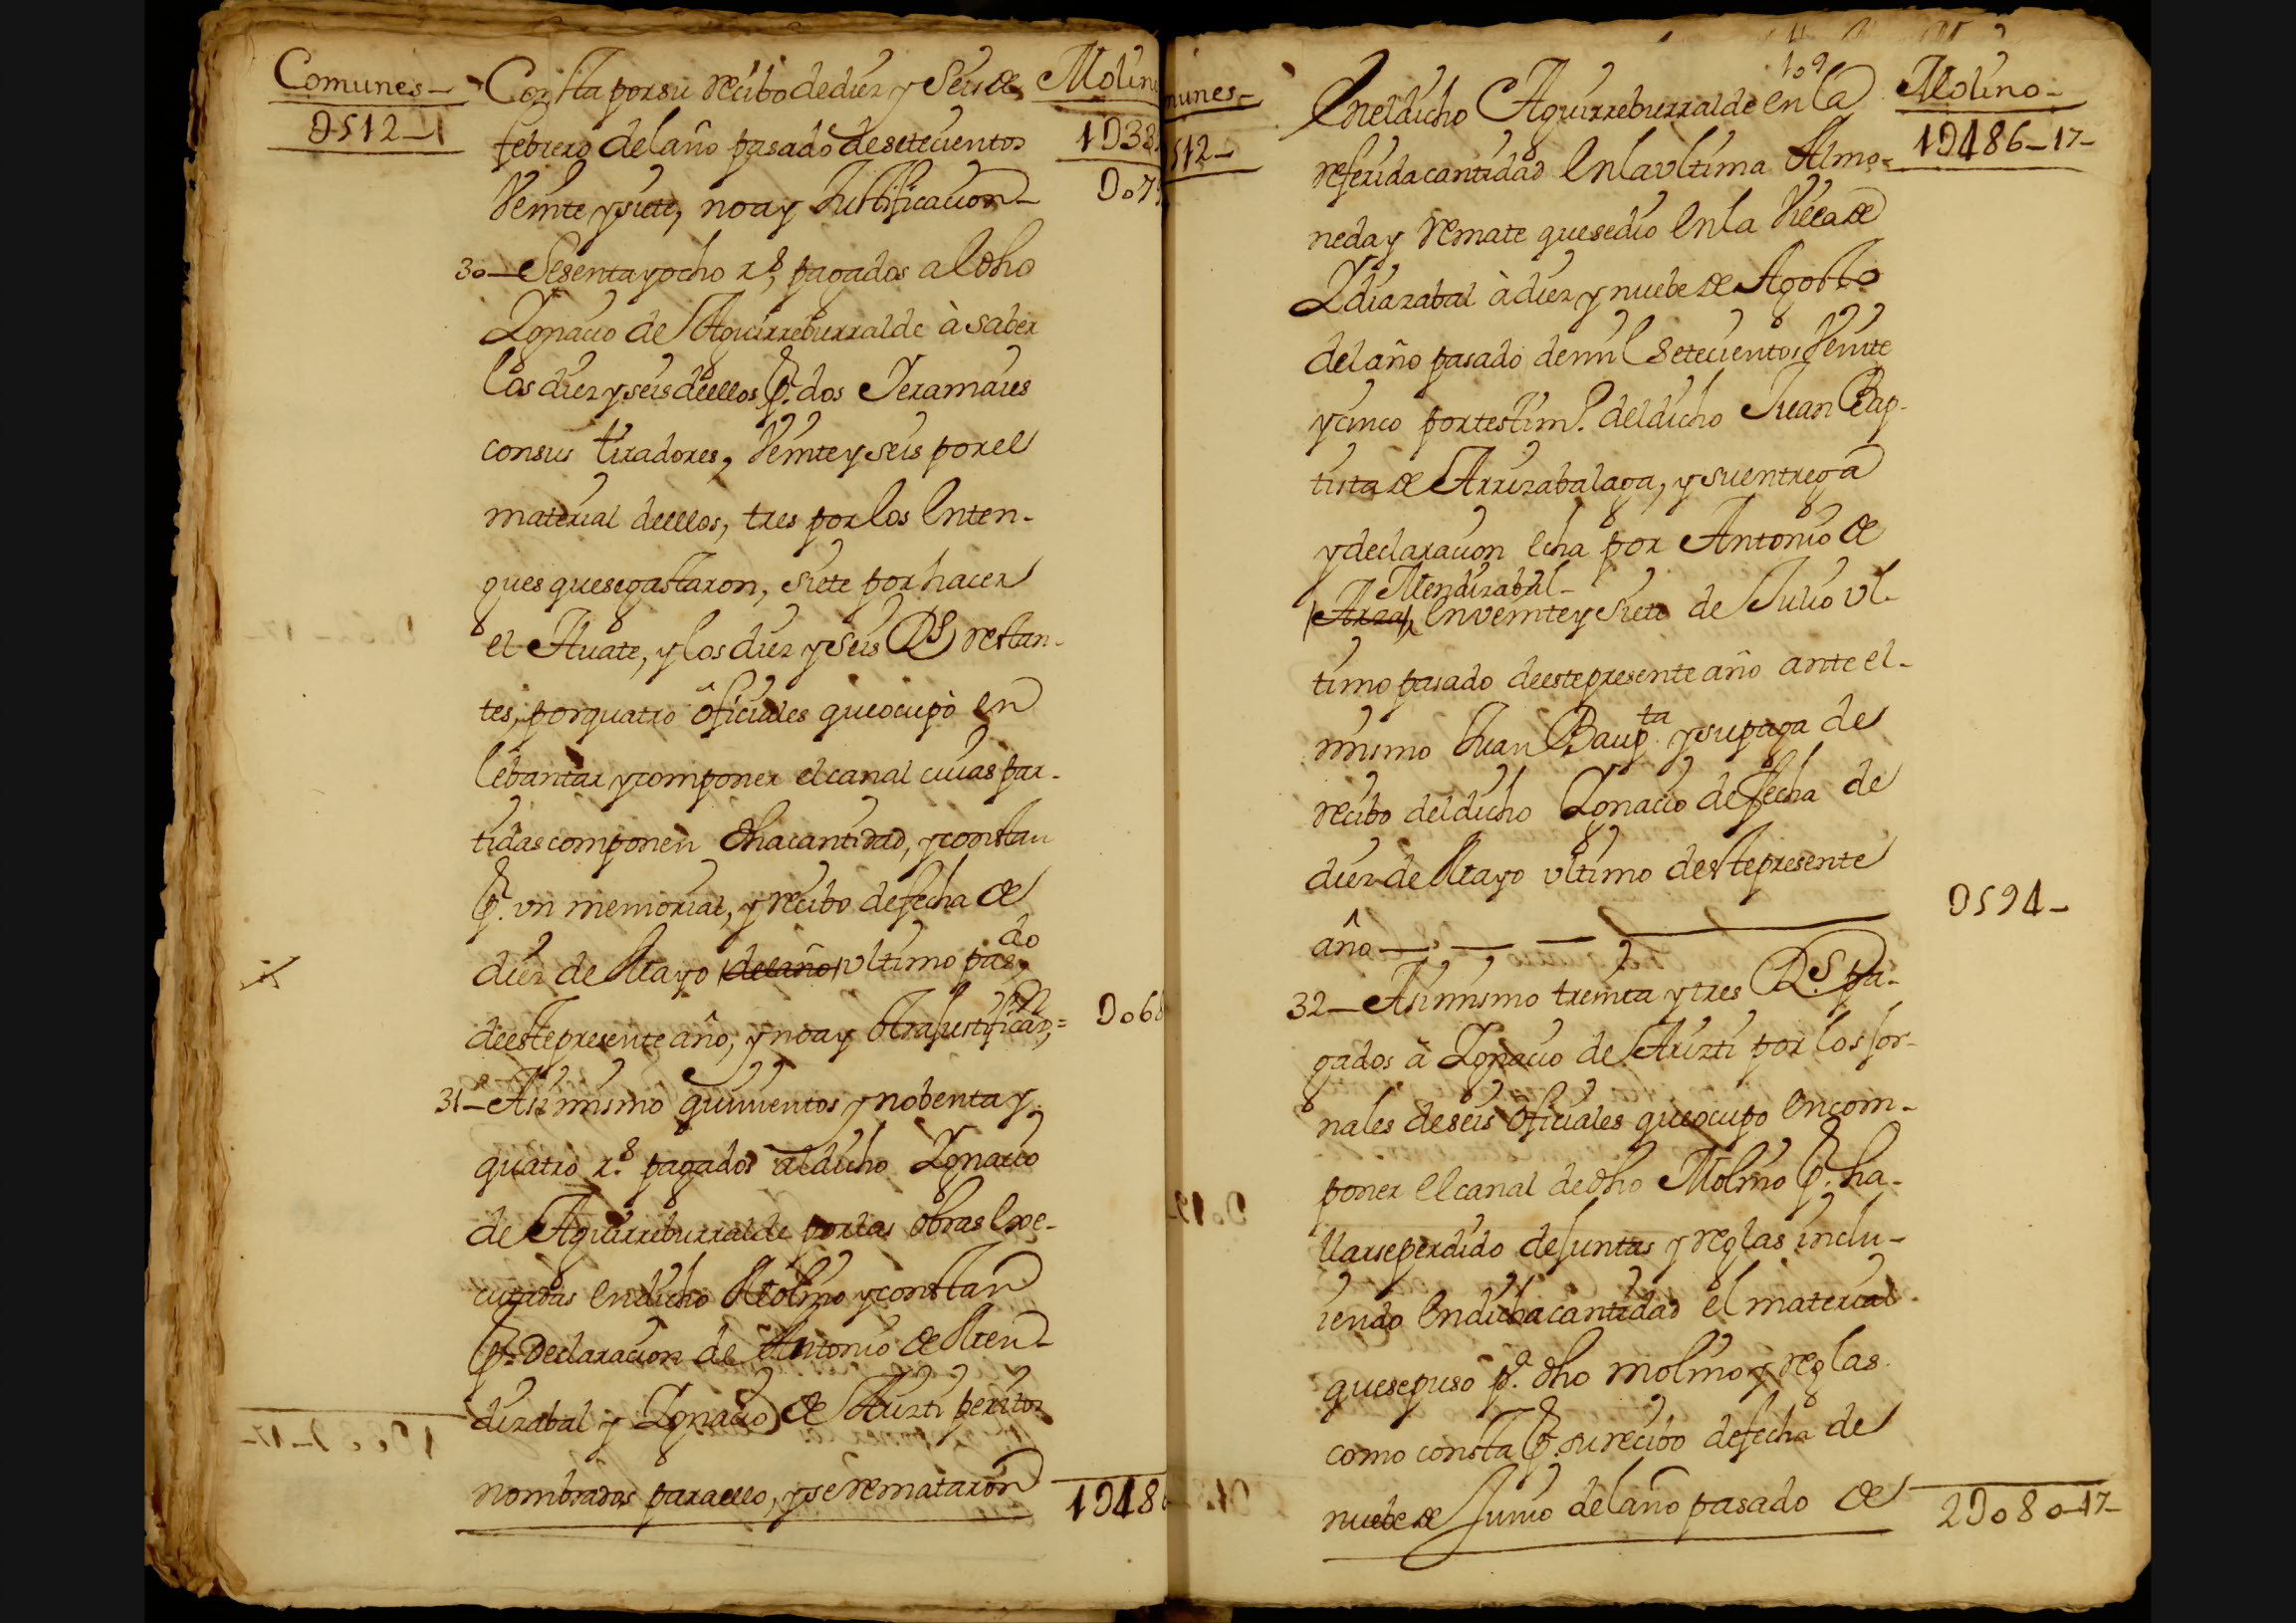 Comunes-
D512-
Molin
1D38
D07
Consta por su recibo de diez y Seis de
febrero del año pasado de setecientos
Veinte y siete, no ay Justificacion-
30-Sesenta y ocho rs, pagados al dho
Ignacio de Aguirreburralde à saber
los diez y seis deellos p. dos Jeramaies
consus tiradores, Veinte y seis por el
material deellos, tres por los Enten-
gues que se gastaron, siete por hacer
el Auate, y los diez y Seis Rs restan-
tes, por quatro oficiales que ocupò en
lebantar y componer el canal cuias par-
tidas componen dha cantidad, y constan
p. vn memorial, y recibo de fecha de
diez de Mayo (del año) vltimo pasdo
de este presente año, y no ay otra justificaon,=
D068
31-Asi mismo quinientos y nobenta y
quatro rs. pagados al dicho Ignacio
de Aguirreburralde por las obras Exe-
cutadas En dicho Molino y constan
p. Declaracion de Antonio de Men-
dizabal y Ignacio de Aruzti peritos
nombrados para ello, y se remataron
1D486
munes-
512-
109
Molino-
1D486-17-
En el dicho Aguirreburralde en la
referida cantidad En la vltima Almo-
neda y Remate que se dio En la Villa de
Idiazabal à diez y nuebe de Agosto
del año pasado de mil Setecientos Veinte
y cinco por testim.o del dicho Juan Bap-
tista de Arrizabalaga, y su entrega
y declaracion echa por Antonio de
Mendizabal-
(Arza), En veinte y Siete de Julio vl-
timo pasado de este presente año ante el-
mismo Juan Baup.ta y su paga de
recibo del dicho Ignacio de fecha de
diez de Mayo vltimo deste presente
año
D594-
32-Asi mismo treinta y tres Rs. pa-
gados à Ignacio de Aruzti por los jor-
nales de seis oficiales que ocupo En com-
poner el canal de dho Molino p. ha-
llarse perdido de juntas y reglas inclu-
iendo En dicha cantidad el material
que se puso p.a dho molino y reglas
como consta p. su recibo de fecha de
nuebe de Junio del año pasado de
2D080-17-